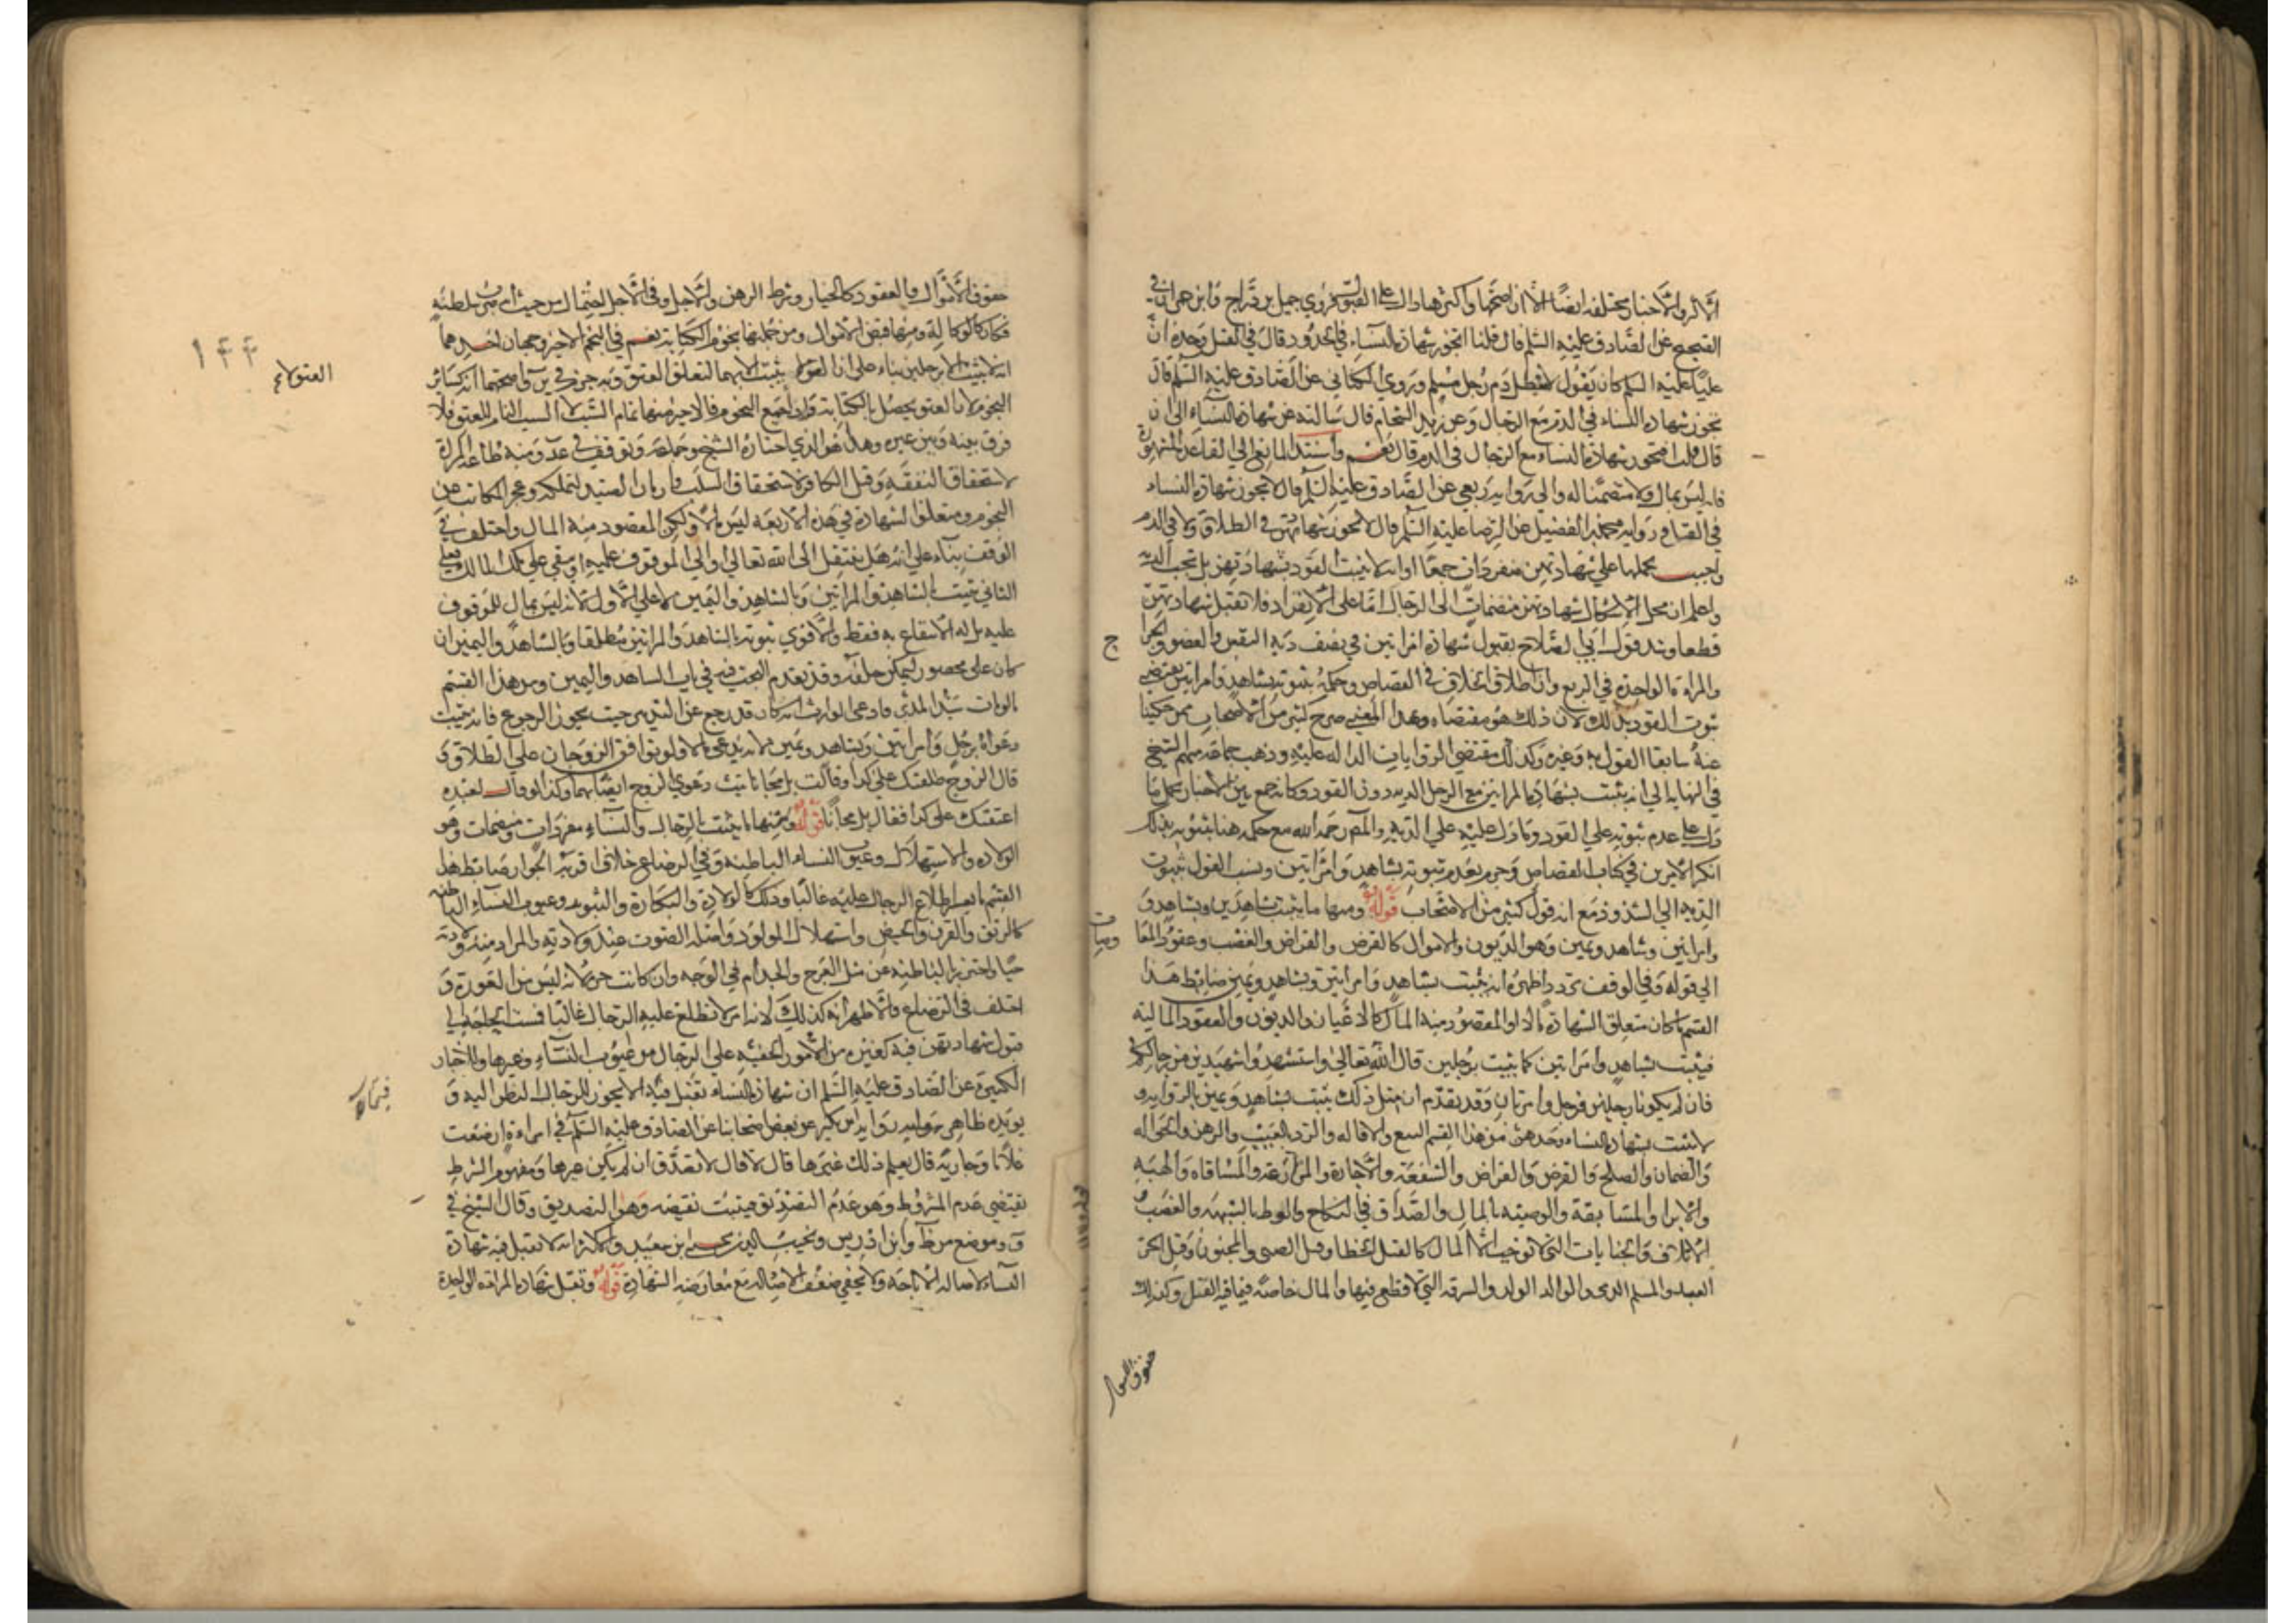 الاكثر والاخبار مختلفه ايضا الا ان اصحها واكثرها دال علي القبول فروي جميل بن دراج وابن حمران في
الصحيح عن الصادق عليه السلم قال قلنا اتجوز شهادة النساء في الحدود قال في القتل وحده ان
عليا عليه السلم كان يقول لا يبطل دم رجل مسلم وروي الكناني عن الصادق عليه السلم قال
تجوز شهاده النساء في الدم مع الرجال وعن زيد الشحام قال سالته عن شهادة النساء الي ان
قال قلت افتجوز شهادة النساء مع الرجال في الدم قال نعم واستند المانع الي القاعدة المشهورة
فانه ليس بمال ولا متضمنا له والي رواية ربعي عن الصادق عليه السلم قال لا يجوز شهادة النساء
في القتل ورواية محمد بن الفضيل عن الرضا عليه السلم قال لا تجوز شهادتهن في الطلاق ولا في الدم
واجيب بحملها علي شهادتهن منفردات جمعا او انه لا يثبت القود بشهادتهن بل تجب الديه
واعلم ان محل الاشكال شهادتهن منضمات الي الرجال اما علي الانفراد فلا تقبل شهادتهن
قطعا وشذ قول ابي الصلاح بقبول شهادة امراتين في نصف دية النفس والعضو والجراح
والمراة الواحدة في الربع وان اطلاق الخلاف في القصاص وحكمه بثبوته بشاهد وامراتين يقتضي
ثبوت القود بذلك لان ذلك هو مقتضاه وبهذا المعني صرح كثير من الاصحاب ممن حكينا
عنه سابقا القول به وغيره وكذلك مقتضي الروايات الداله عليه وذهب جماعة منهم الشيخ
في النهاية الي انه يثبت بشهادة المراتين مع الرجل الديه دون القود وكانه جمع بين الاخبار بحمل ما
دل علي عدم ثبوته علي القود وما دل عليه علي الديه والمص رحمه الله مع حكمه هنا بثبوته بذلك
انكر الامرين في كتاب القصاص وجزم بعدم ثبوته بشاهد وامراتين ونسب القول بثبوت
الديه الي الشذوذ مع انه قول كثير من الاصحاب قوله ومنها ما يثبت بشاهدين وشاهد و
وامراتين وشاهد ويمين وهو الديون والاموال كالقرض والقراض والغصب وعقود المعا
وضات
الي قوله وفي الوقف تردد اظهره انه يثبت بشاهد وامراتين وبشاهد ويمين ضابط هذا
القسم ما كان متعلق الشهادة مالا او المقصود منه المال كالاعيان والديون والعقود الماليه
فيثبت بشاهد وامراتين كما يثبت برجلين قال الله تعالي واستشهدوا شهيدين من رجالكم
فان لم يكونا رجلين فرجل وامراتان وقد تقدم ان مثل ذلك يثبت بشاهد ويمين بالروايه و
لا يثبت بشهادة النساء وحدهن فمن هذا القسم البيع والاقاله والرد بالعيب والرهن والحواله
والضمان والصلح والقرض والقراض والشفعة والاجارة والمزارعة والمساقاه والهبه
والابرا والمسابقة والوصيه بالمال والصداق في النكاح والوطء بالشبهة والغصب
الاتلاف والجنايات التي لا توجب الا المال كالقتل الخطا وقتل الصبي والمجنون وقتل الحر
العبد والمسلم الذمي والوالد الولد والسرقه التي لا قطع فيها والمال خاصة فيما فيه القتل وكذلك
حقوق الاموال
حقوق الاموال والعقود كالخيار وشرط الرهن والاجل وفي الاجل احتمال من حيث انه ضرب سلطنه
فكان كالوكالة ومنها قبض الاموال ومن جملتها نجوم الكتابة نعم في النجم الاخير وجهان احدهما
انه لا يثبت الا برجلين بناء علي ان العتق لا يثبت الا بهما لتعلق العتق وبه جزم في ير واصحهما انه كسائر
النجوم لان العتق يحصل بالكتابة واداء جميع النجوم فالاخير منها تمام السبب لا السبب التام للعتق فلا
العتق لا يم
١٤٤
فرق بينه وبين غيره وهذا هو الذي اختاره الشيخ وجماعة وتوقف في عد ومنه طاعة المراة
لاستحقاق النفقة وقتل الكافر لاستحقاق السلب واتيان الصيد لتملكه وعجز المكاتب عن
النجوم ومتعلق الشهادة في هذه الاربعة ليس مالا ولكن المقصود منه المال واختلف في
الوقف بناء علي انه هل ينتقل الي الله تعالي او الي الموقوف عليه او يبقي علي ملك المالك وعلي
الثاني يثبت بالشاهد والمراتين وبالشاهد واليمين لا علي الاول لانه ليس بمال للموقوف
عليه بل له الانتفاع به فقط والاقوي ثبوته بالشاهد والمراتين مطلقا وبالشاهد واليمين ان
كان علي محصور ليمكن حلفه وقد تقدم البحث فيه في باب الشاهد واليمين ومن هذا القسم
ما لو مات سيد المدبر فادعي الوارث انه كان قد رجع عن التدبير حيث يجوز الرجوع فانه يثبت
دعواه برجل وامراتين وبشاهد ويمين لانه يدعي مالا ولو توافق الزوجان علي الطلاق و
قال الزوج طلقتك علي كذا وقالت بل مجانا ثبت دعوي الزوج ايضا بهما وكذا لو قال لعبده
اعتقتك علي كذا فقال بل مجانا قوله ومنها ما يثبت بالرجال والنساء منفردات ومنضمات وهو
الولاده والاستهلال وعيوب النساء الباطنه وفي الرضاع خلاف اقربه الجواز ضابط هذا
القسم ما يعسر اطلاع الرجال عليه غالبا وذلك كالولادة والبكارة والثيوبه وعيوب النساء الباطنه
كالرتق والقرن والحيض واستهلال المولود واصله الصوت عند ولادته والمراد منه ولادته
حيا واحترز بالباطنه عن مثل العرج والجذام في الوجه وان كانت حرة لانه ليس من العورة و
اختلف في الرضاع والاظهر انه كذلك لانه امر لا تطلع عليه الرجال غالبا فمست الحاجة الي
قبول شهادتهن فيه كغيره من الامور الخفية علي الرجال من عيوب النساء وغيرها وللاخبار
الكثيرة عن الصادق عليه السلم ان شهادة النساء تقبل فيما لا يجوز للرجال النظر اليه و
يؤيده ظاهر رواية ابن بكير عن بعض اصحابنا عن الصادق عليه السلم في امراءة ارضعت
غلاما وجارية قال يعلم ذلك غيرها قال لا قال لا تصدق ان لم يكن غيرها ومفهوم الشرط
يقتضي عدم المشروط وهو عدم التصديق فيثبت نقيضه وهو التصديق وقال الشيخ في
ف وموضع من ط وابن ادريس ونجيب الدين يحيي ابن سعيد والاكثر انه لا تقبل فيه شهادة
النساء لاصاله الاباحة ولا يخفي ضعف الاصاله مع معارضه الشهادة قوله وتقبل شهادة المراة الواحدة